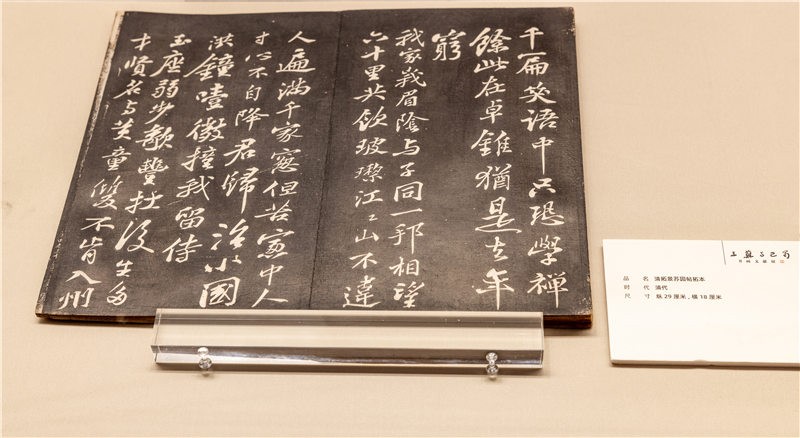 千篇笑語中只恐學禪
餘此在卓錐猶是去年
窮
我家峩眉陰与子同一邦相望
六十里共飲玻瓈江江山不違
人遍滿千家窓但苦窓中人
寸心不自降君歸治小國
洪鐘噎微撞我留侍
玉座弱步欹豐扛後生多
才賢名与黃童雙不肯入州
品 名 清拓景苏园帖拓本
时 代 清代
尺 寸 纵 29 厘米，横 18 厘米